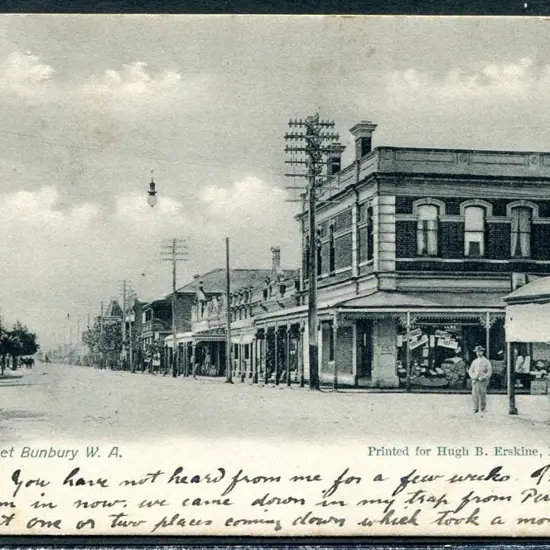 et Bunbury W. A.
Printed for Hugh B. Erskine,
You have not heard from me for a few weeks.
m in now, we came down in my trap from Per
t one or two places coming down which took a mo